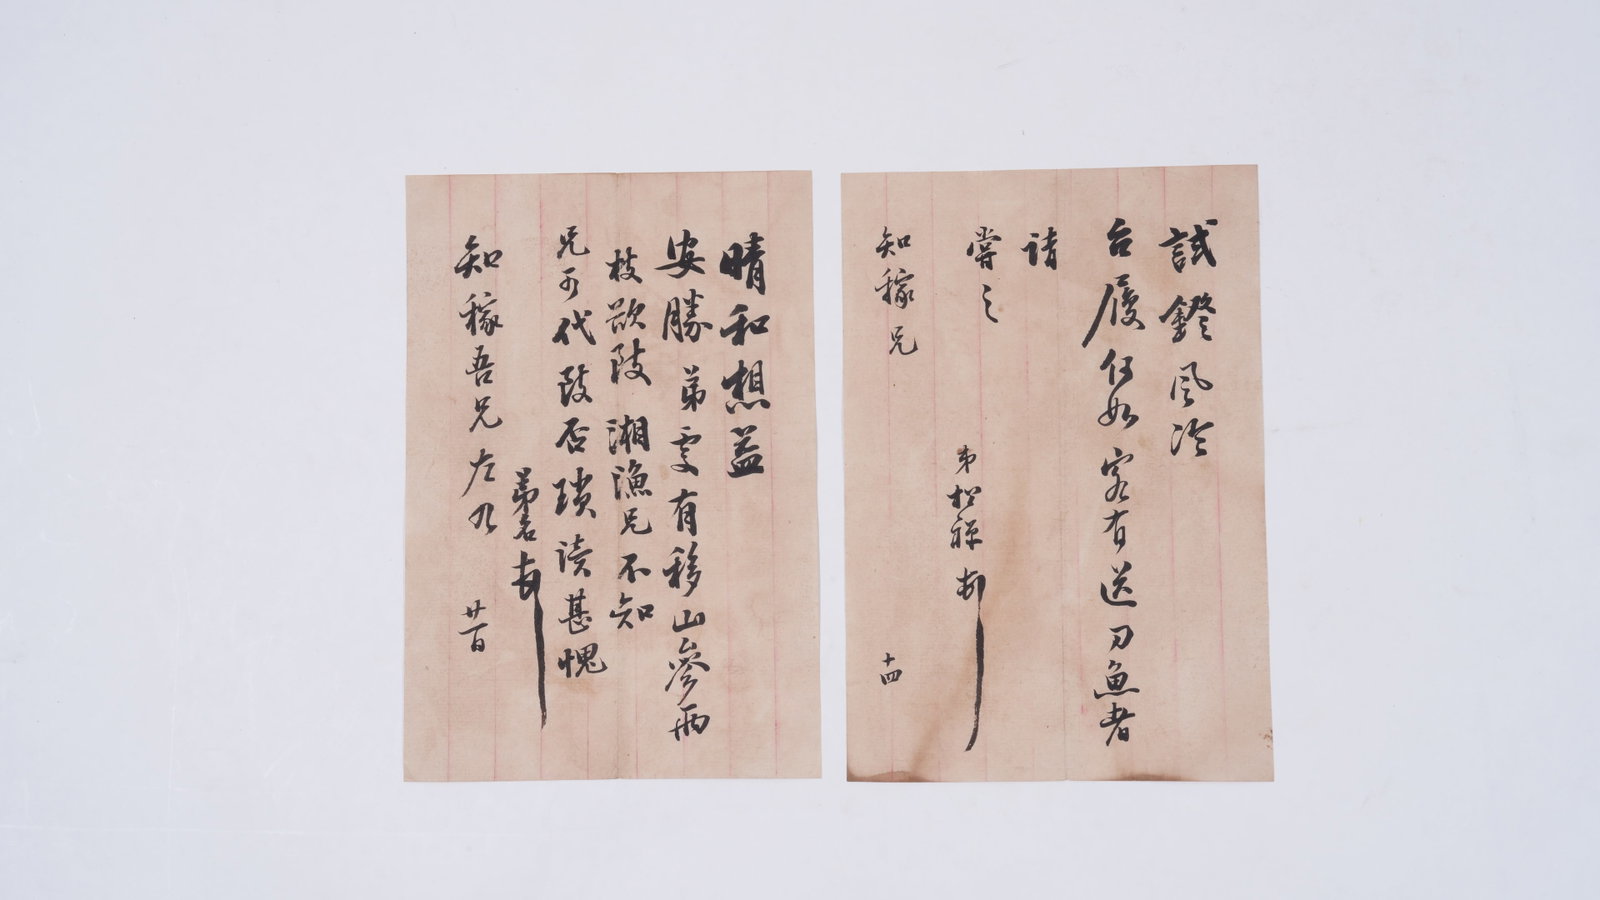 試鐙風冷
台履何如客有送刀魚者
請
嘗之
弟松禪頓
知稼兄
十四
晴和想益
安勝弟更有移山參兩
枝欲致湘漁兄不知
兄可代致否瑣瀆甚愧
弟名頓
知稼吾兄左右
廿一日